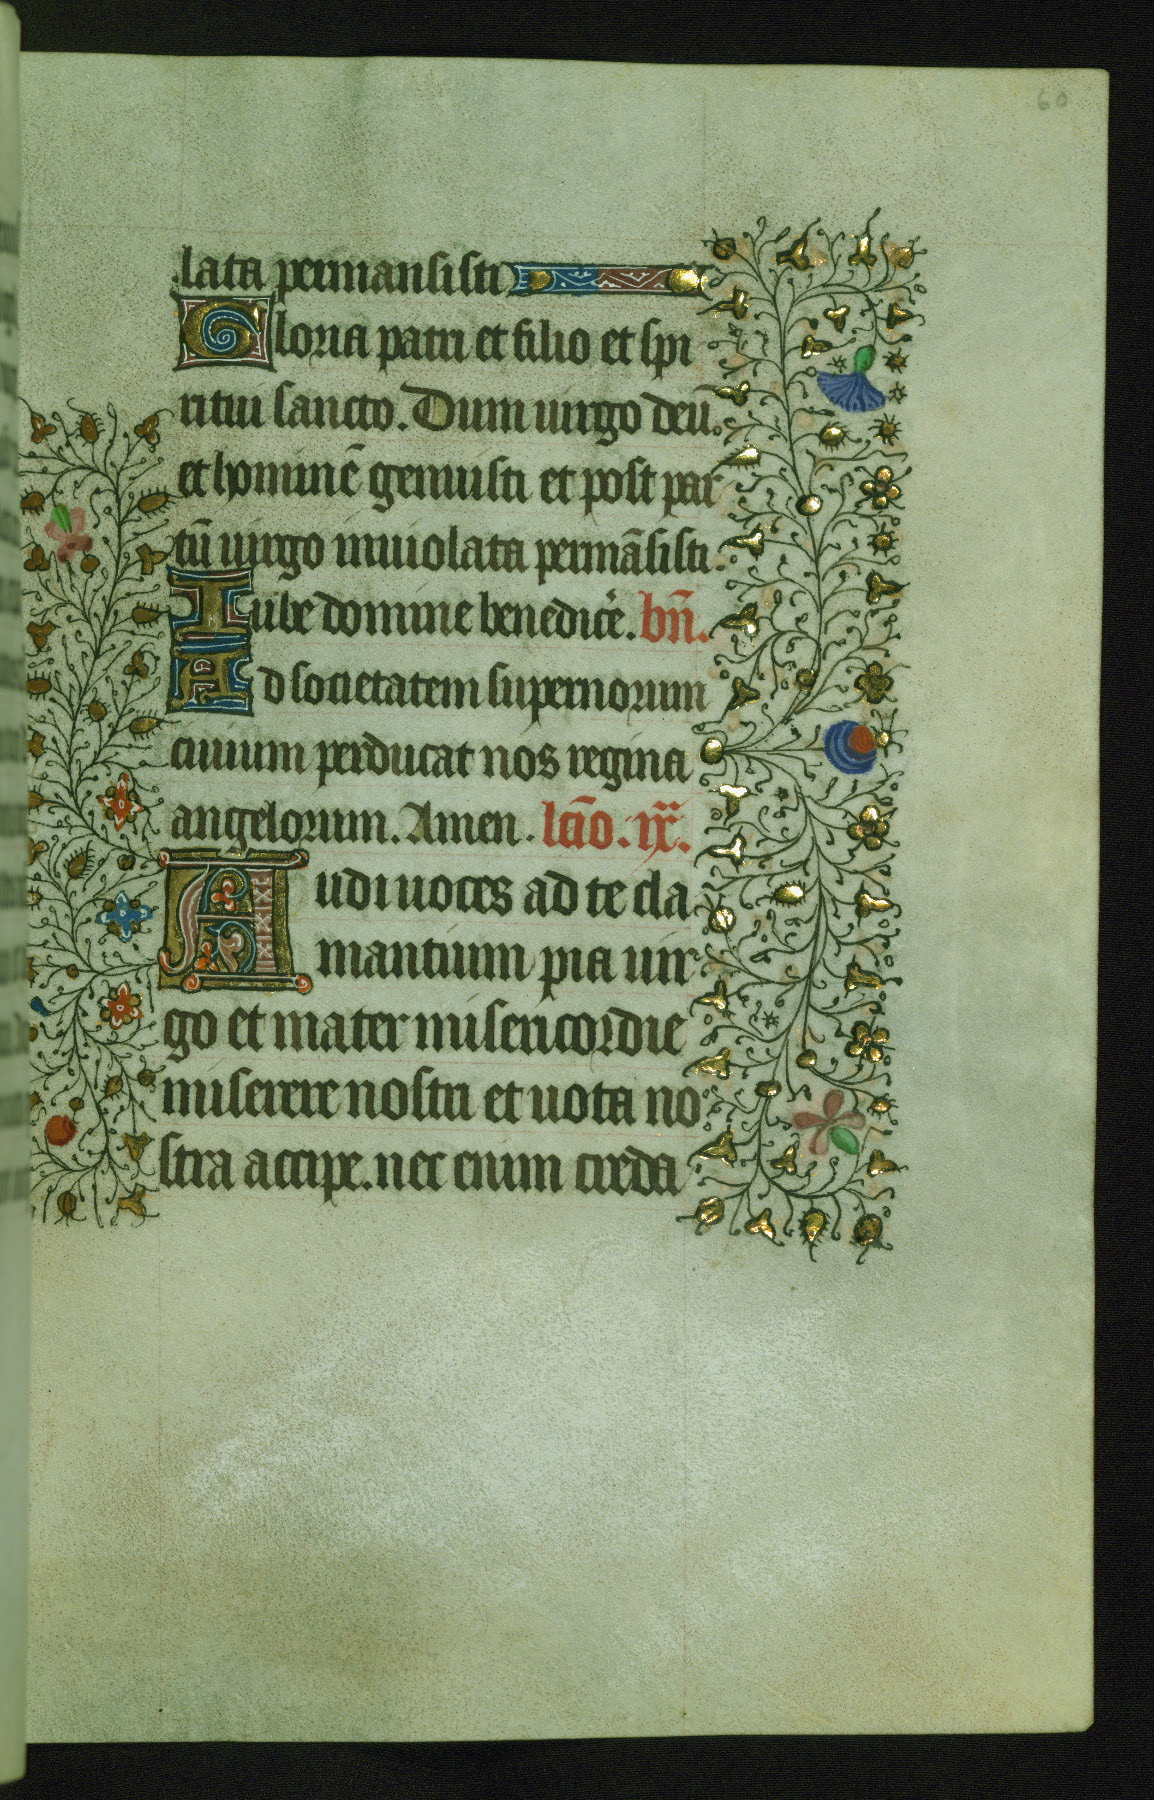 60
lata permansisti
Gloria patri et filio et spi
ritui sancto. Dum uirgo deū
et hominē genuisti et post par
tū uirgo inuiolata permāsisti.
Iube domine benedicẽ. bn̄.
Ad societatem supernorum
ciuium perducat nos regina
angelorum. Amen. lcīo. ix.
Audi uoces ad te cla
mantium pia uir
go et mater misericordie
miserere nostri et uota no
stra accipe. nec enim creda